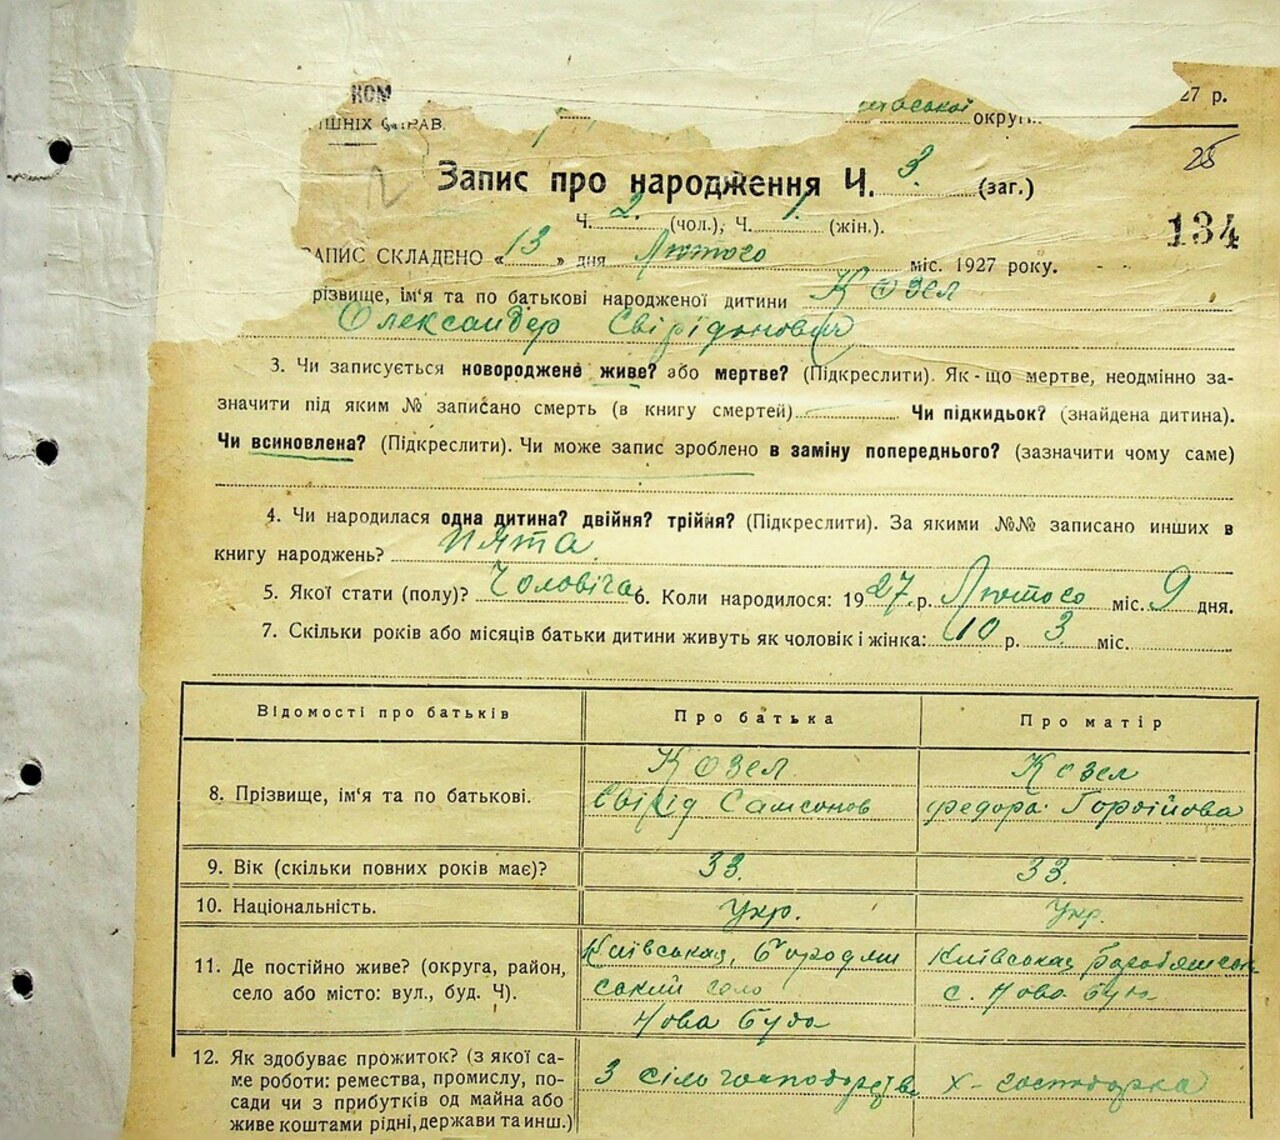 КОМ
27 р.
ШНІХ СПРАВ.
округи
25
Запис про народження Ч. 3. (заг.)
134
Ч. 2. (чол.), Ч. 1 (жін.).
АПИС СКЛАДЕНО « 13 » дня Лютого міс. 1927 року.
різвище, ім'я та по батькові народженої дитини Козел
Олександер Свірідонович
3. Чи записується новороджене живе? або мертве? (Підкреслити). Як-що мертве, неодмінно за-
значити під яким № записано смерть (в книгу смертей) Чи підкидьок? (знайдена дитина).
Чи всиновлена? (Підкреслити). Чи може запис зроблено в заміну попереднього? (зазначити чому саме)
4. Чи народилася одна дитина? двійня? трійня? (Підкреслити). За якими №№ записано инших в
книгу народжень? пята
5. Якої стати (полу)? Чоловіча 6. Коли народилося: 1927 р. Лютого міс. 9 дня.
7. Скільки років або місяців батьки дитини живуть як чоловік і жінка: 10 р. 3 міс.
Відомості про батьків Про батька Про матір
8. Прізвище, ім'я та по батькові. Козел Козел
Свірід Самсонов Федора Гордійова
9. Вік (скільки повних років має)? 33. 33.
10. Національність. Укр. Укр.
11. Де постійно живе? (округа, район, село або місто: вул., буд. Ч). Київська, Київська,
село с. Нова Буда
Нова Буда
12. Як здобуває прожиток? (з якої са-
ме роботи: ремества, промислу, по-
сади чи з прибутків од майна або
живе коштами рідні, держави та инш.) З сілогосподарства Х-господарка